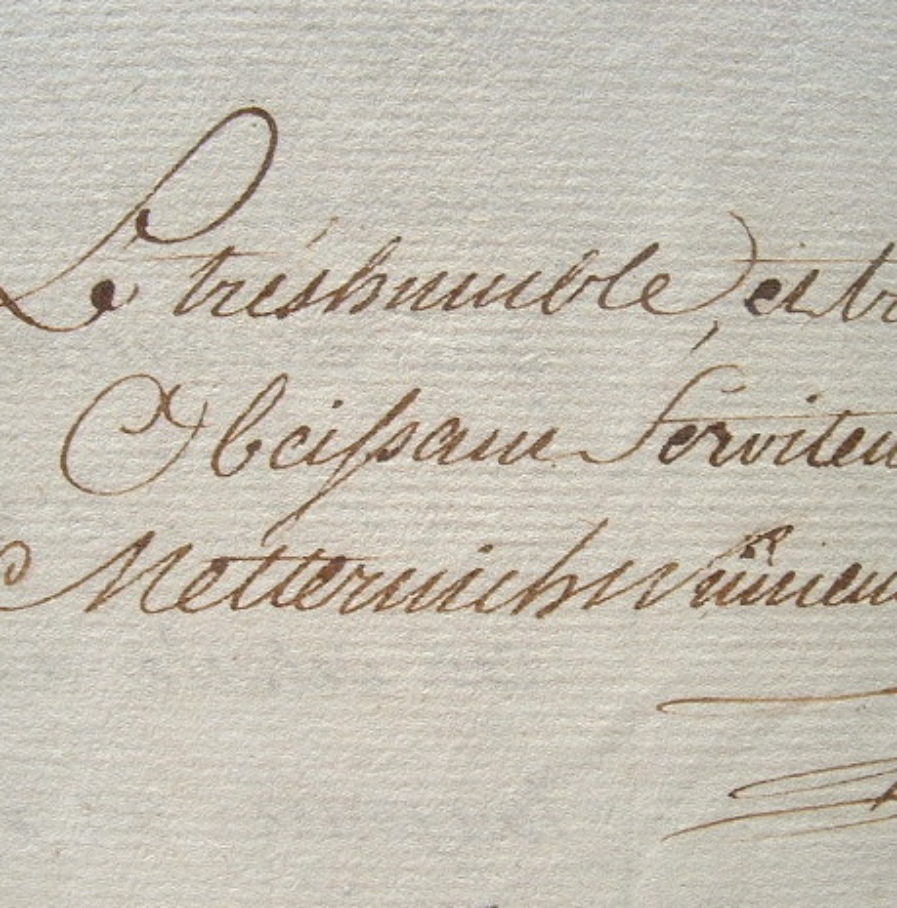 Le tréshumble et tr
Obeissant Serviteu
Metternich Winneu